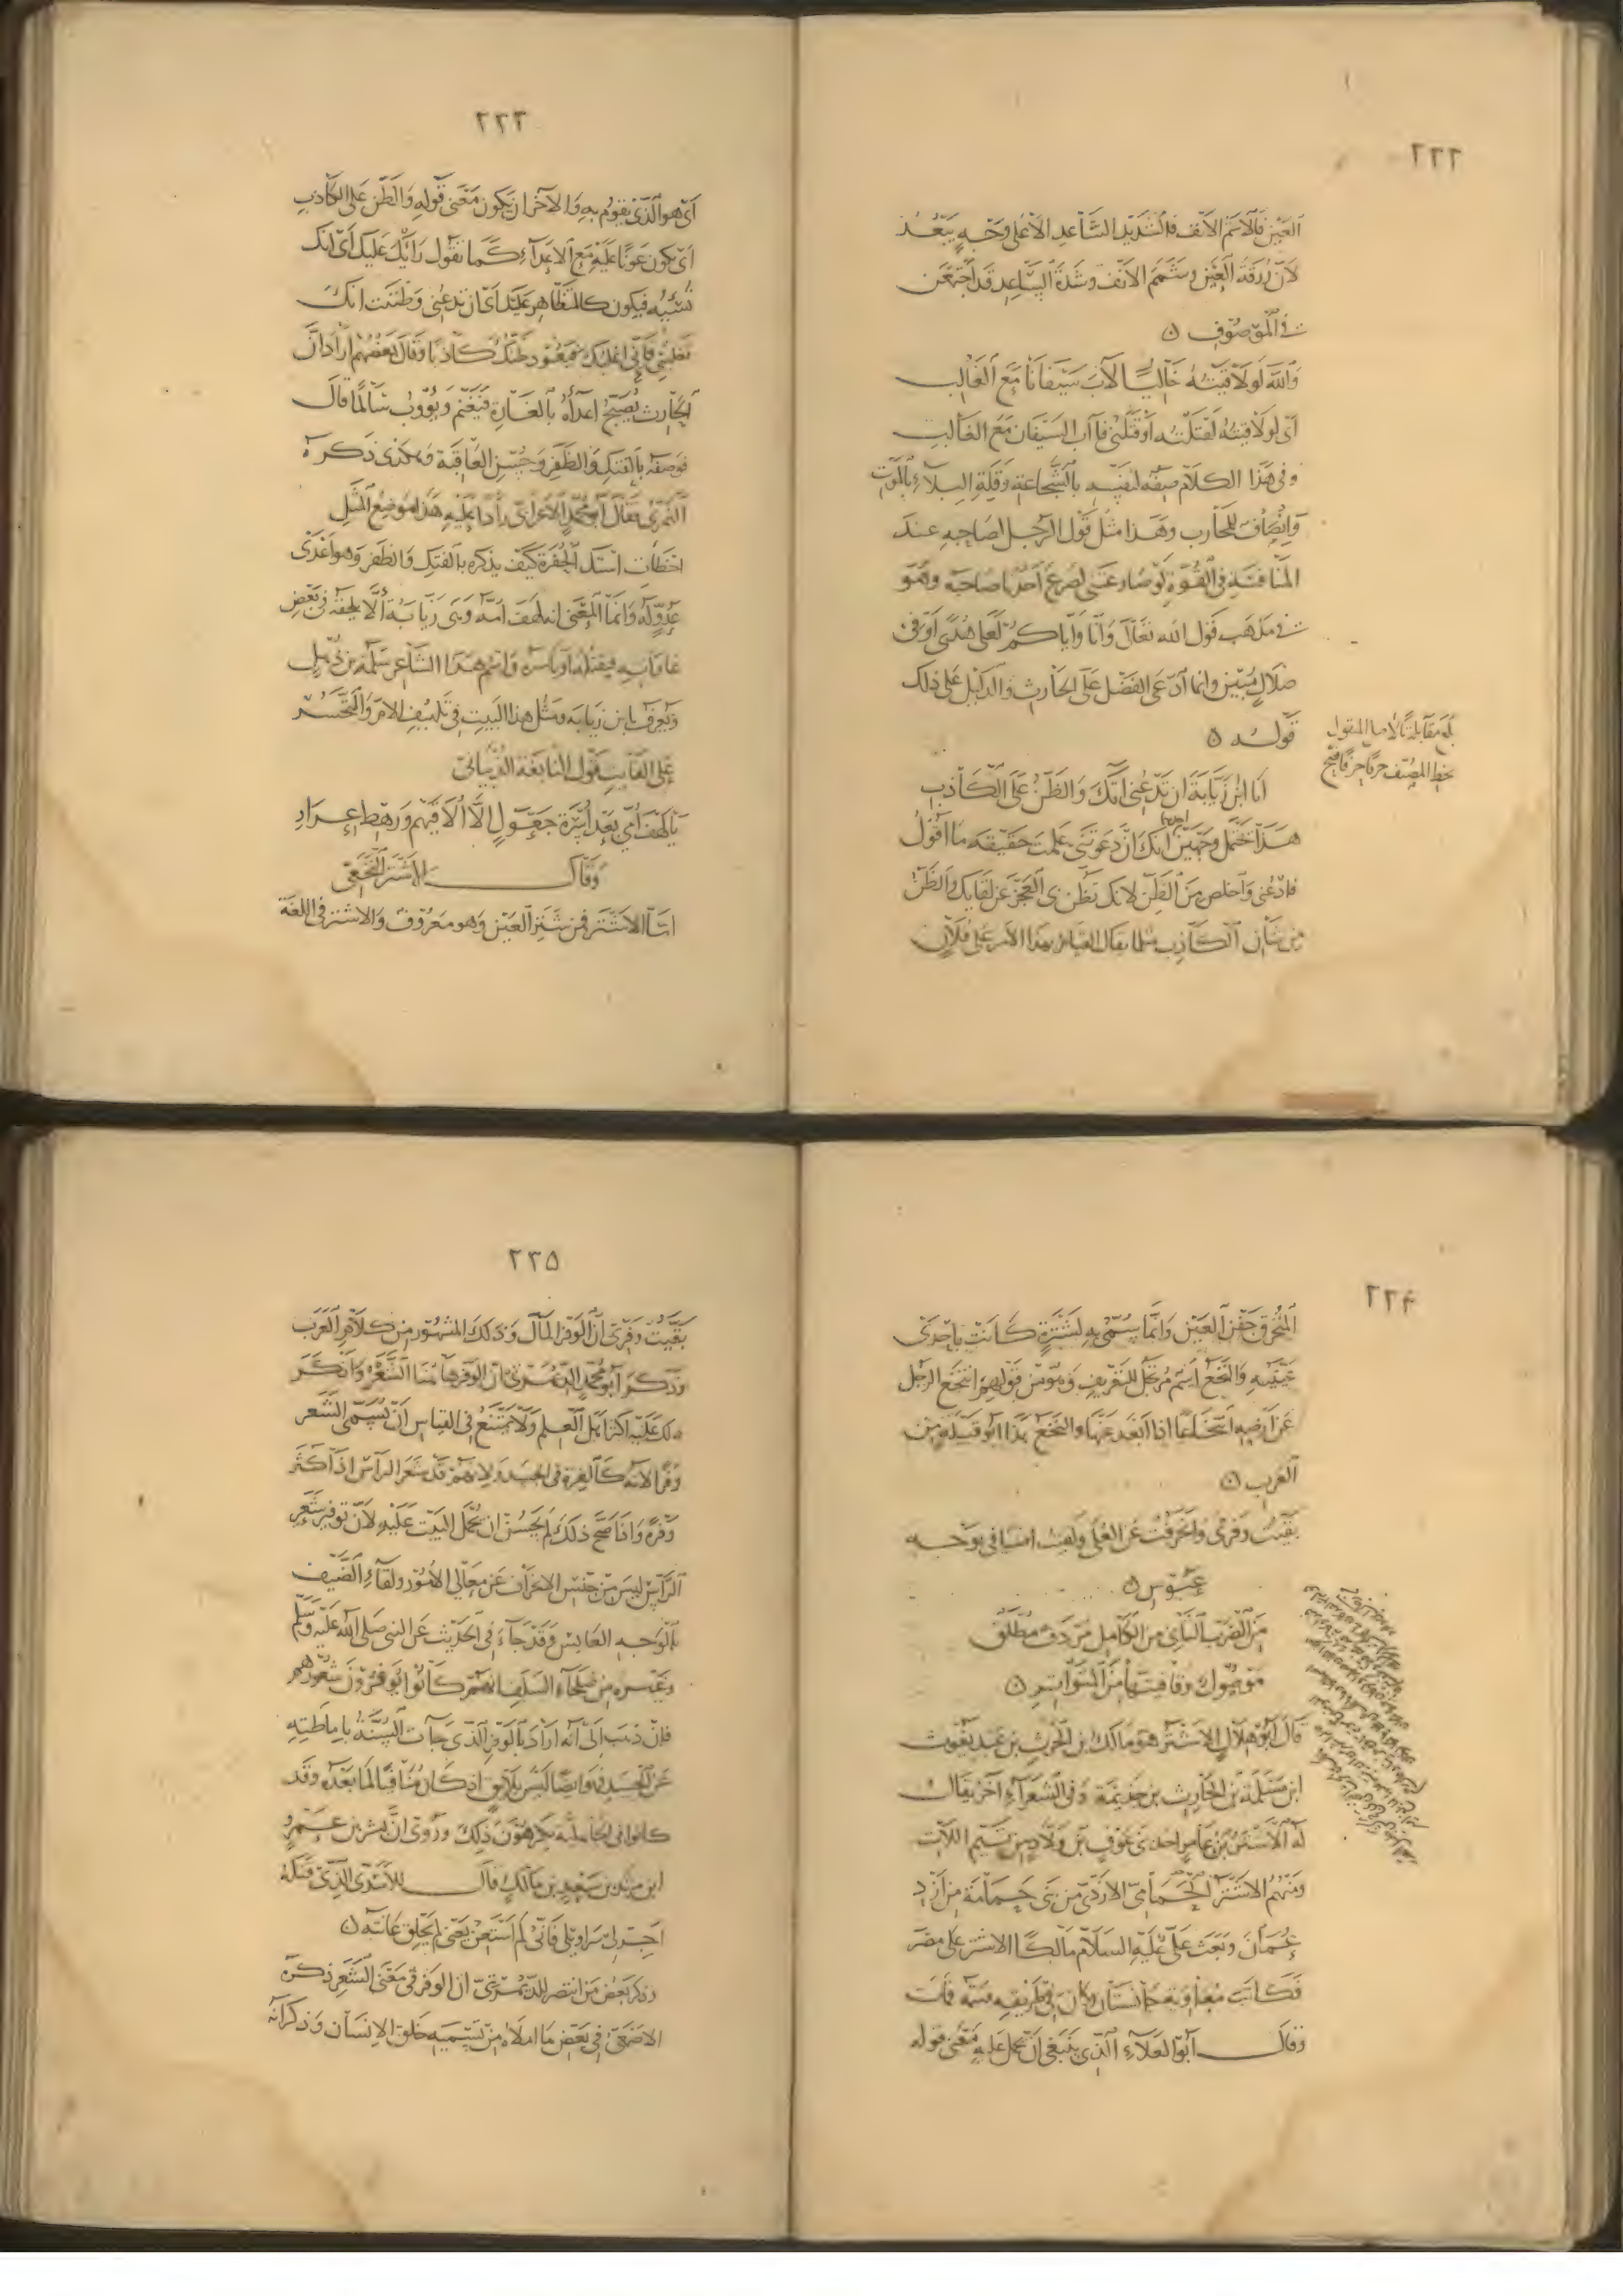 ٢٢٢
العين فالاشم الانف فالشديد الساعد الا على وجه يبعد
لان زرقة العين وشمم الانف وشدة الساعد قد اجتمعن
في الموصوف ٥
والله لو لاقيته خاليا لآب سيفانا مع الغالب
اى لو لاقيته لقتلته او قتلنى فآب السيفان مع الغالب
وفى هذا الكلام صفه لنفسه بالشجاعة وقلة المبالاة بالموت
وانصاف للمحارب وهذا مثل قول الرجل لصاحبه عند
المنافسة فى القوة لو صارعتنى لصرع احدنا صاحبه وهو
فى مذهب قول الله تعالى وانا واياكم لعلى هدى او فى
ضلال مبين وانما ادعى الفضل على الحارث والدليل على ذلك
قوله ٥
بلغ مقابلة بالاصل المنقول
بخط المصنف حرفا حرفا فصح
انا ابن زيابة ان تدعنى آتك والظن على الكاذب
هذا يحتمل وجهين احدهما انك ان دعوتنى علمت حقيقة ما اقول
فادعنى واخلص من الظن لانك تظن بى العجز عن لقايك والظن
من شان الكاذب كما يقال القيام بهذا الامر على فلان
٢٢٣
اى هو الذى يقوم به والآخر ان يكون معنى قوله والظن على الكاذب
اى يكون عونا عليه مع الاعداء كما تقول رايك عليك اى انك
تسيئه فيكون كالمتظاهر عليك اى ان تدعنى وظننت انك
تغلبنى فانى اغلبك فيعود ظنك كاذبا وقال بعضهم اراد ان
الحارث يصبح اعداءه بالغارة فيغنم ويؤوب سالما قال
فوصفه بالفتك والظفر وحسن العاقبة وهكذى ذكره
النمرى فقال ابو محمد الاعرابى رادا عليه هذا موضع المثل
اخطات استك الحفرة كيف يذكره بالفتك والظفر وهو اعدى
عدو له وانما المعنى انه لهف امه وهى زيابة الا يلحقه فى بعض
غاراته فيقتله او ياسره واسم هذا الشاعر سلمة بن ذهل
ويعرف بابن زيابة ومثل هذا البيت فى تلهيف الام والتحسر
على الفايت قول النابغة الذبيانى
يا لهف امى بعد اسرة جعول الا الاقيهم ورهط عرار
وقال الاشتر النخعى
اما الاشتر فمن شتر العين وهو معروف والاشتر فى اللغة
٢٢٤
المنخرق جفن العين وانما سمى به لشترة كانت باحدى
عينيه والنخع اسم مرتجل للتعريف وهو من قولهم انتخع الرجل
عن ارضه انتخاعا اذا ابعد عنها والنخع هذا ابو قبيلة من
العرب ٥
بقيت وفرى وانحرفت عن العلى ولقيت اضيافى بوجه
عبوس ٥
من الضرب الثانى من الكامل مردف مطلق
موصول وقافيتها من المتواتر ٥
قال ابو هلال الاشتر هو مالك بن الحرث بن عبد يغوث
ابن سلمة بن الحارث بن جذيمة وفى الشعراء آخر يقال
له الاشتر بن عامر احد بنى عوف بن ولاد من تيم اللات
ومنهم الاشتر الحمامى الازدى من بنى حمامة من ازد
عمان وبعث على عليه السلام مالكا الاشتر على مصر
وقال ابو العلاء الذى ينبغى ان يحمل عليه معنى قوله
٢٢٥
بقيت وفرى ان الوفر المال وذلك المشهور من كلام العرب
وذكر ابو محمد الديمرتى ان الوفر هاهنا الشعر وانكر
ذلك عليه اكثر اهل العلم ولا يمتنع فى القياس ان يسمى الشعر
وفرا لانه كالوفرة فى الجسد ولانهم قد شعر الراس اذا كثر
وفرة واذا صح ذلك لم يحسن ان يحمل البيت عليه لان توفير شعر
الراس ليس من جنس الانحراف عن معالى الامور ولقاء الضيف
بالوجه العابس وقد جاء فى الحديث عن النبى صلى الله عليه وسلم
وغيره من صلحاء السلف انهم كانوا يوفرون شعورهم
فان ذهب الى انه اراد بالوفر الذى جاءت السنة باماطته
عن الجسد فهو ايضا ليس بلايق اذ كان منافيا لما بعده وقد
كانوا فى الجاهلية يكرهون ذلك وروى ان بشر بن عمرو
ابن مرثد بن سعد بن مالك قال للاسدى الذى قتله
اجر لى سراويلى فانى لم استعن يعنى لم يحلق عانته ٥
وذكر بعض من انتصر للديمرتى ان الوفر فى معنى الشعر ذكره
الاصمعى فى بعض ما املاه من تسميه خلق الانسان وذكر انه